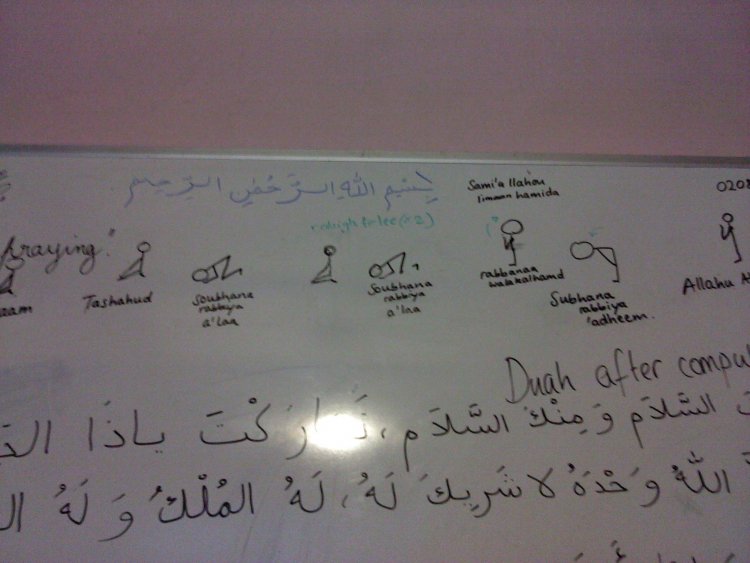 بِسْمِ اللهِ الرَّحْمٰنِ الرَّحِيم
Sami'a llahou
limaan hamida
praying."
Tashahud
Soubhana
rabbiya
a'laa
Soubhana
rabbiya
a'laa
rabbanaa
walakalhamd
Subhana
rabbiya
'adheem.
Allahu
Duah after
السَّلاَم وَمِنْكَ السَّلاَم، تَبَارَكْتَ يَاذَا
اللهُ وَحْدَهُ لاَ شَرِيكَ لَهُ، لَهُ المُلْكُ وَ لَهُ